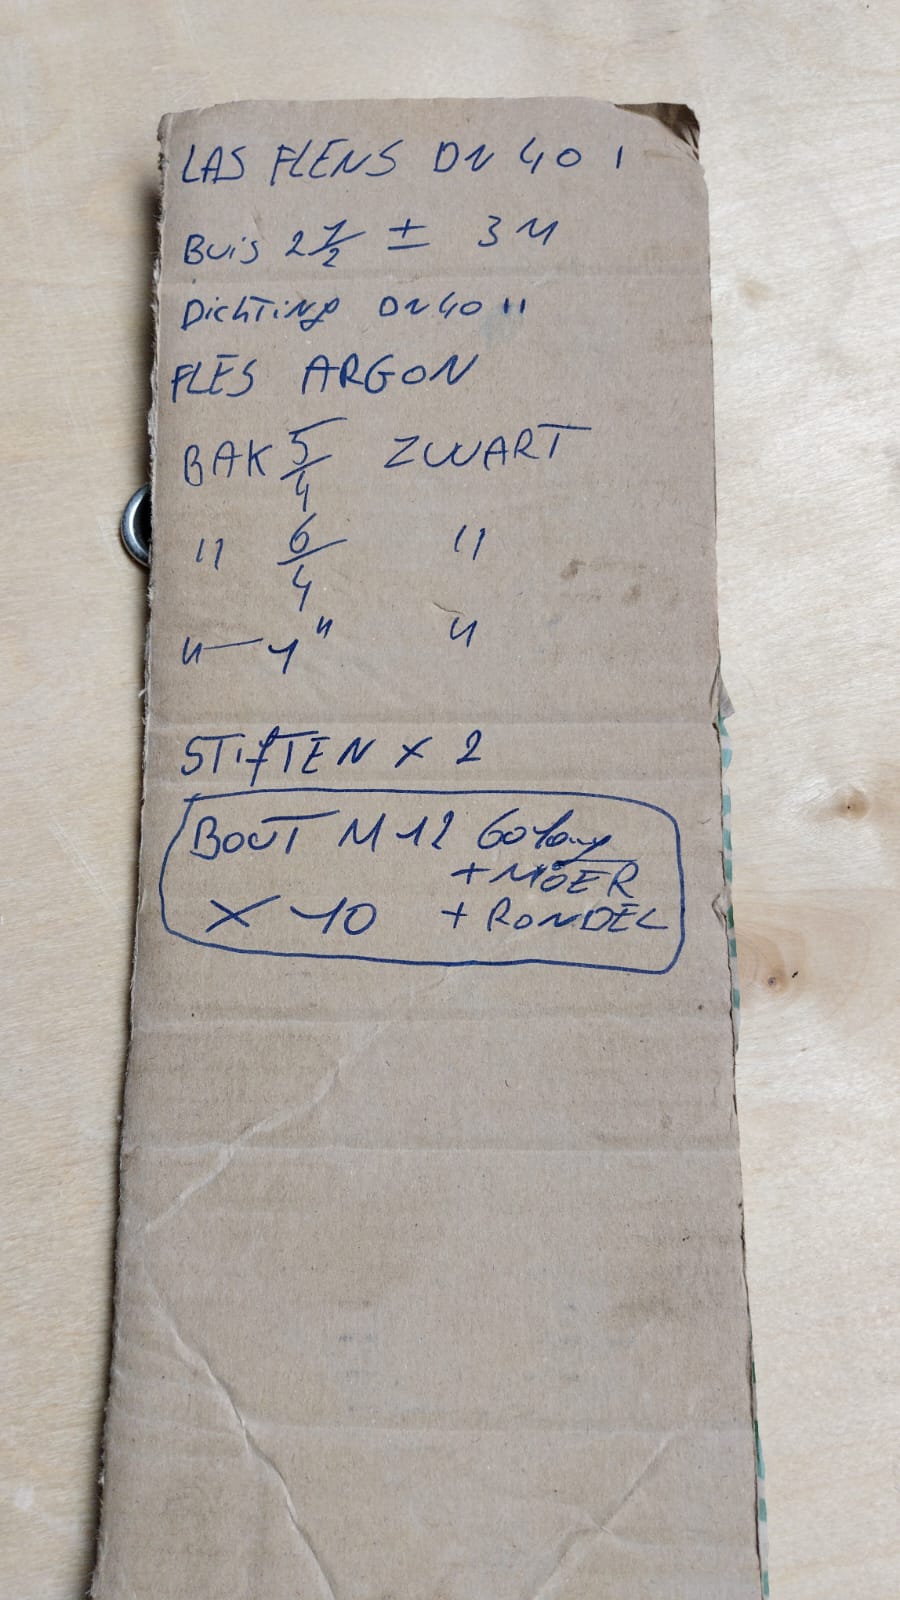 LAS FLENS DN 40 I
Buis 2 1/2 ± 3 M
Dichting DN 40 II
FLES ARGON
BAK 5/4 ZWART
" 6/4 "
" — 1" "
STIFTEN X 2
BOUT M 12 60 long
+ MOER
X 10 + RONDEL